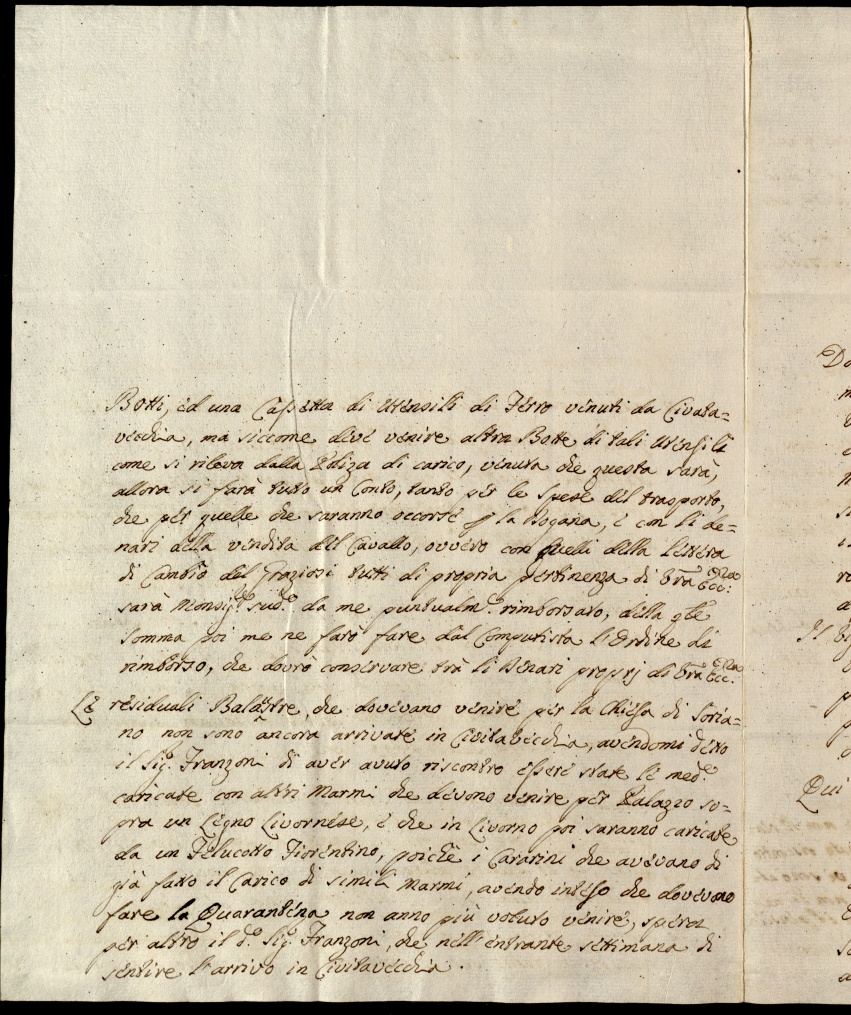 Botti, ed una Cassetta di Utensili di Ferro venuti da Civita=
vecchia, ma siccome deve venire altra Botte di tali Utensili
come si rileva dalla Poliza di carico, venuta che questa sarà,
allora si farà tutto un Conto, tanto per le spese del trasporto,
che per quelle che saranno occorse p la Dogana, e con li de=
nari della vendita del Cavallo, ovvero con quelli della lettera
di Cambio del Graziosi tutti di propria pertinenza di Vra Ecc:
sarà Monsig.e sud.o da me puntualm.e rimborsato, della qle
somma poi me ne farò fare dal Computista l'Ordine di
rimborso, che dovrò conservare trà li Denari proprj di Vra Ecc:
Le residuali Balaustre, che dovevano venire per la Chiesa di Soria=
no non sono ancora arrivate in Civitavecchia, avendomi detto
il Sig. Franzoni di aver avuto riscontro essere state le med.e
caricate con altri Marmi che devono venire per Palazzo so=
pra un Legno Livornese, e che in Livorno poi saranno caricate
da un Felucotto Fiorentino, poiche i Cararini che avevano di
già fatto il Carico di simili Marmi, avendo inteso che dovevano
fare la Quarantena non anno più voluto venire, spera
per altro il d.o Sig. Franzoni, che nell'entrante settimana di
sentire l'arrivo in Civitavecchia.
Do
Il
Qui